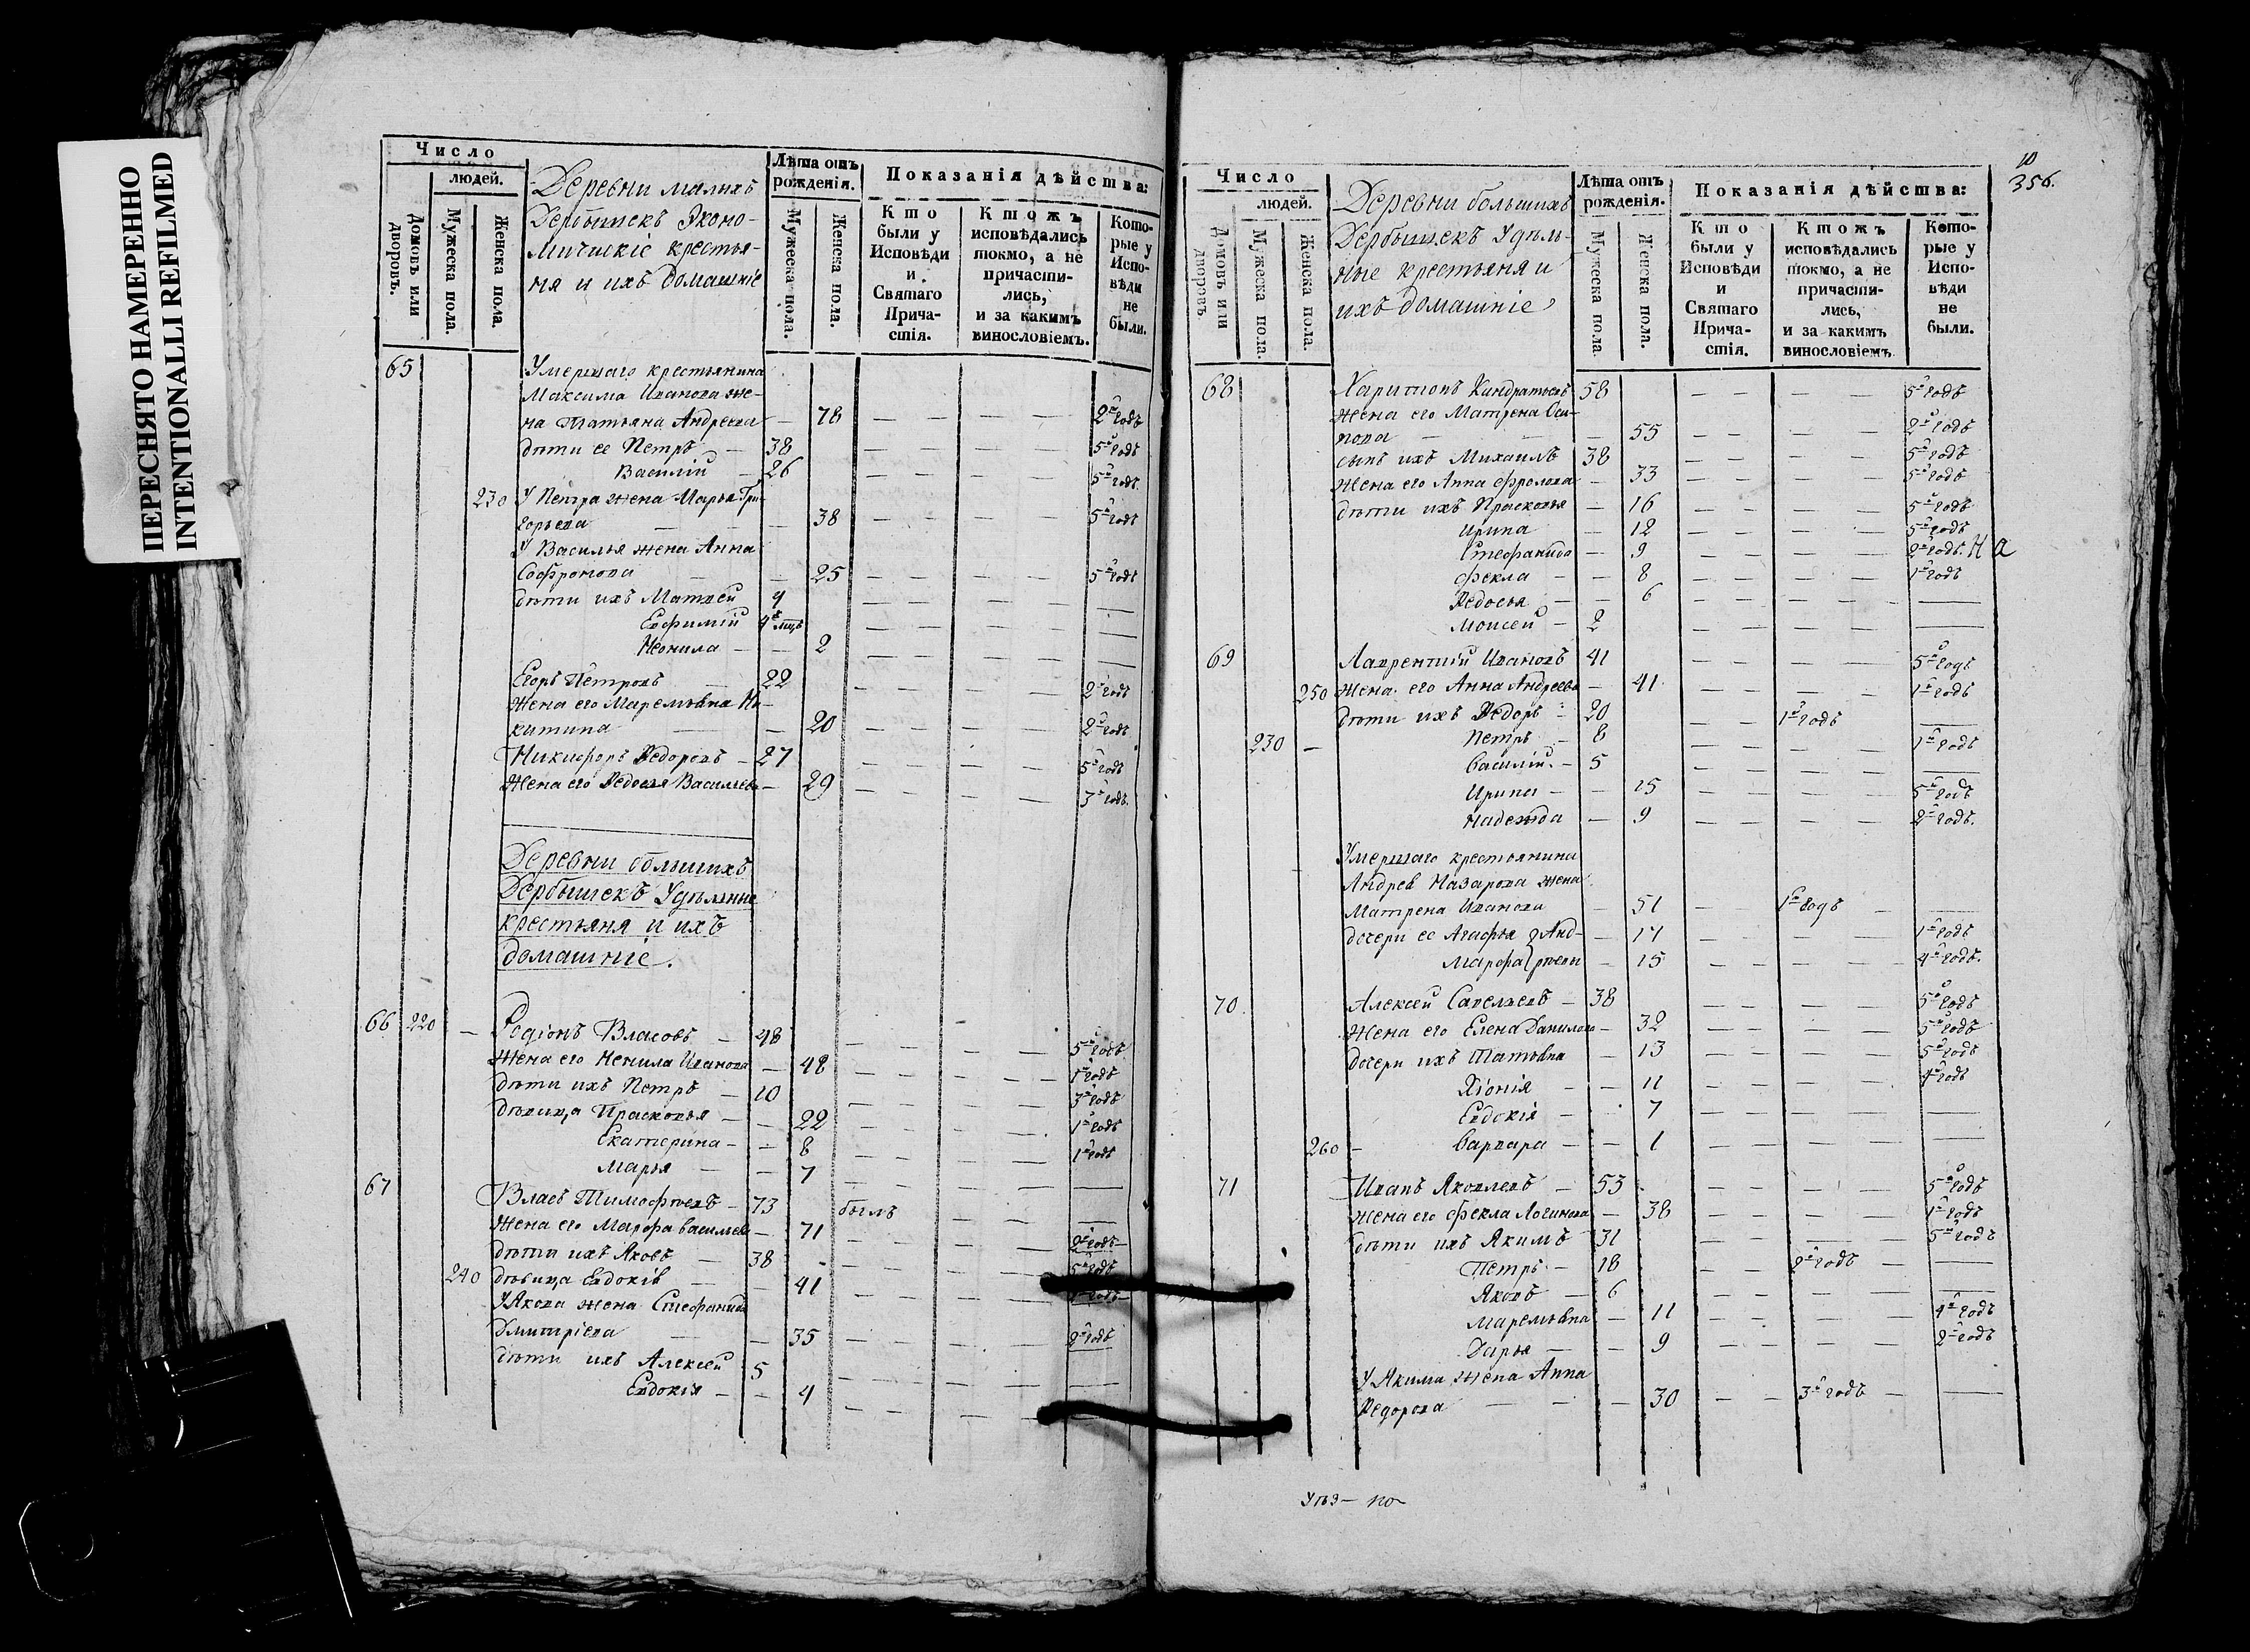 ПЕРЕСНЯТО НАМЕРЕННО
INTENTIONALLI REFILMED
Число
людей.
Домовъ или дворовъ.
Мужеска пола.
Женска пола.
Деревни малыхъ
Дербышекъ Эконо-
мическіе крестья-
ня и ихъ домашніе
Лѣта отъ
рожденія.
Мужеска пола.
Женска пола.
Показанія дѣйства:
Кто
были у
Исповѣди
и
Святаго
Прича-
стія.
Ктожъ
исповѣдались
токмо, а не
причасти-
лись,
и за какимъ
винословіемъ.
Кото-
рые у
Испо-
вѣди
не
были.
65 Умершаго крестьянина
Максима Иванова же-
на Татьяна Андреева — 78 — — — — 2й годъ
дѣти ее Петръ — 38 — — — — 5й годъ
Василій — 26 — — — — 5й годъ.
230 У Петра жена Марья Гри-
горьева — — — 38 — — — — 5й годъ
У Василья жена Анна
Софронова — — 25 — — — — 5й годъ
дѣти ихъ Матвей 4 — — — — —
Евфимій 4 мцъ — — — — —
Неонила — — 2 — — — — —
Егоръ Петровъ — 22 — — — — 2й годъ
жена его Маремьяна Ни-
китина — — 20 — — — — 2й годъ
Никифоръ Ѳедоровъ — 27 — — — — 5й годъ
жена его Ѳедосья Васильева — 29 — — — — 3й годъ.
Деревни большихъ
Дербышекъ Удѣльные
крестьяня и ихъ
домашніе.
66 220 — Родіонъ Власовъ — 48 — — — — 5й годъ
жена его Ненила Иванова — 48 — — — — 1й годъ
дѣти ихъ Петръ — 10 — — — — 3й годъ
дѣвица Прасковья — — 22 — — — — 1й годъ
Екатерина — — 8 — — — — 1й годъ
Марья — — 7 — — — — —
67 Власъ Тимофѣевъ — 73 былъ — — —
жена его Марфа Васильева — 71 — — — — 2й годъ
дѣти ихъ Яковъ — 38 — — — — 5й годъ
240 дѣвица Евдокія — — 41 — — — —
У Якова жена Стефанида
Дмитріева — — 35 — — — — 2й годъ
дѣти ихъ Алексей 5 — — — — —
Евдокія — — 4 — — — —
10
356.
Число
людей.
Домовъ или дворовъ.
Мужеска пола.
Женска пола.
Деревни большихъ
Дербышекъ Удѣль-
ные крестьяня и
ихъ домашніе
Лѣта отъ
рожденія.
Мужеска пола.
Женска пола.
Показанія дѣйства:
Кто
были у
Исповѣди
и
Святаго
Прича-
стія.
Ктожъ
исповѣдались
токмо, а не
причасти-
лись,
и за какимъ
винословіемъ
Кото-
рые у
Испо-
вѣди
не
были.
68 Харитонъ Кондратьевъ 58 — — — — 5й годъ
жена его Матрена Оси-
пова — — — 55 — — — — 2й годъ
сынъ ихъ Михаилъ 38 — — — — 5й годъ
жена его Анна Фролова — 33 — — — — 5й годъ
дѣти ихъ Прасковья — 16 — — — — 5й годъ
Ирина — 12 — — — — 5й годъ
Стефанида — 9 — — — — 2й годъ.
Фекла — — 8 — — — — 1й годъ
Ѳедосья — — 6 — — — — —
Моисей — 2 — — — — —
69 Лаврентій Ивановъ 41 — — — — 5й годъ
250 жена его Анна Андреева — 41 — — — — 1й годъ
дѣти ихъ Ѳедоръ — 20 — — 1й годъ —
230 — Петръ — 8 — — — — 1й годъ
Василій. — 5 — — — — —
Ирина — — 15 — — — — 5й годъ
Надежда — 9 — — — — 2й годъ.
Умершаго крестьянина
Андрея Назарова жена
Матрена Иванова — 51 — 1й годъ — —
дочери ее Агафья } Анд- — 17 — — — — 1й годъ
Марфа } рѣевы — 15 — — — — 4й годъ.
70 Алексей Савельевъ — 38 — — — — 5й годъ
жена его Елена Данилова — 32 — — — — 5й годъ
дочери ихъ Татьяна — 13 — — — — 5й годъ
Хіонія — — 11 — — — — 4й годъ
Евдокія — 7 — — — — —
260 — Варвара — — 1 — — — — —
71 Иванъ Яковлевъ — 53 — — — — 5й годъ
жена его Фекла Логинова — 38 — — — — 1й годъ
дѣти ихъ Якимъ 31 — — — — 5й годъ
Петръ — 18 — — 2й годъ —
Яковъ — 6 — — — — —
Маремьяна — 11 — — — — 4й годъ
Дарья — — 9 — — — — 2й годъ
У Якима жена Анна
Ѳедорова — — — 30 — — 3й годъ — —